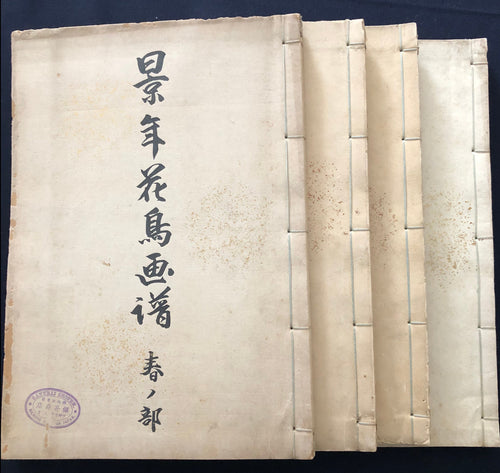 景年花鳥画譜
春ノ部